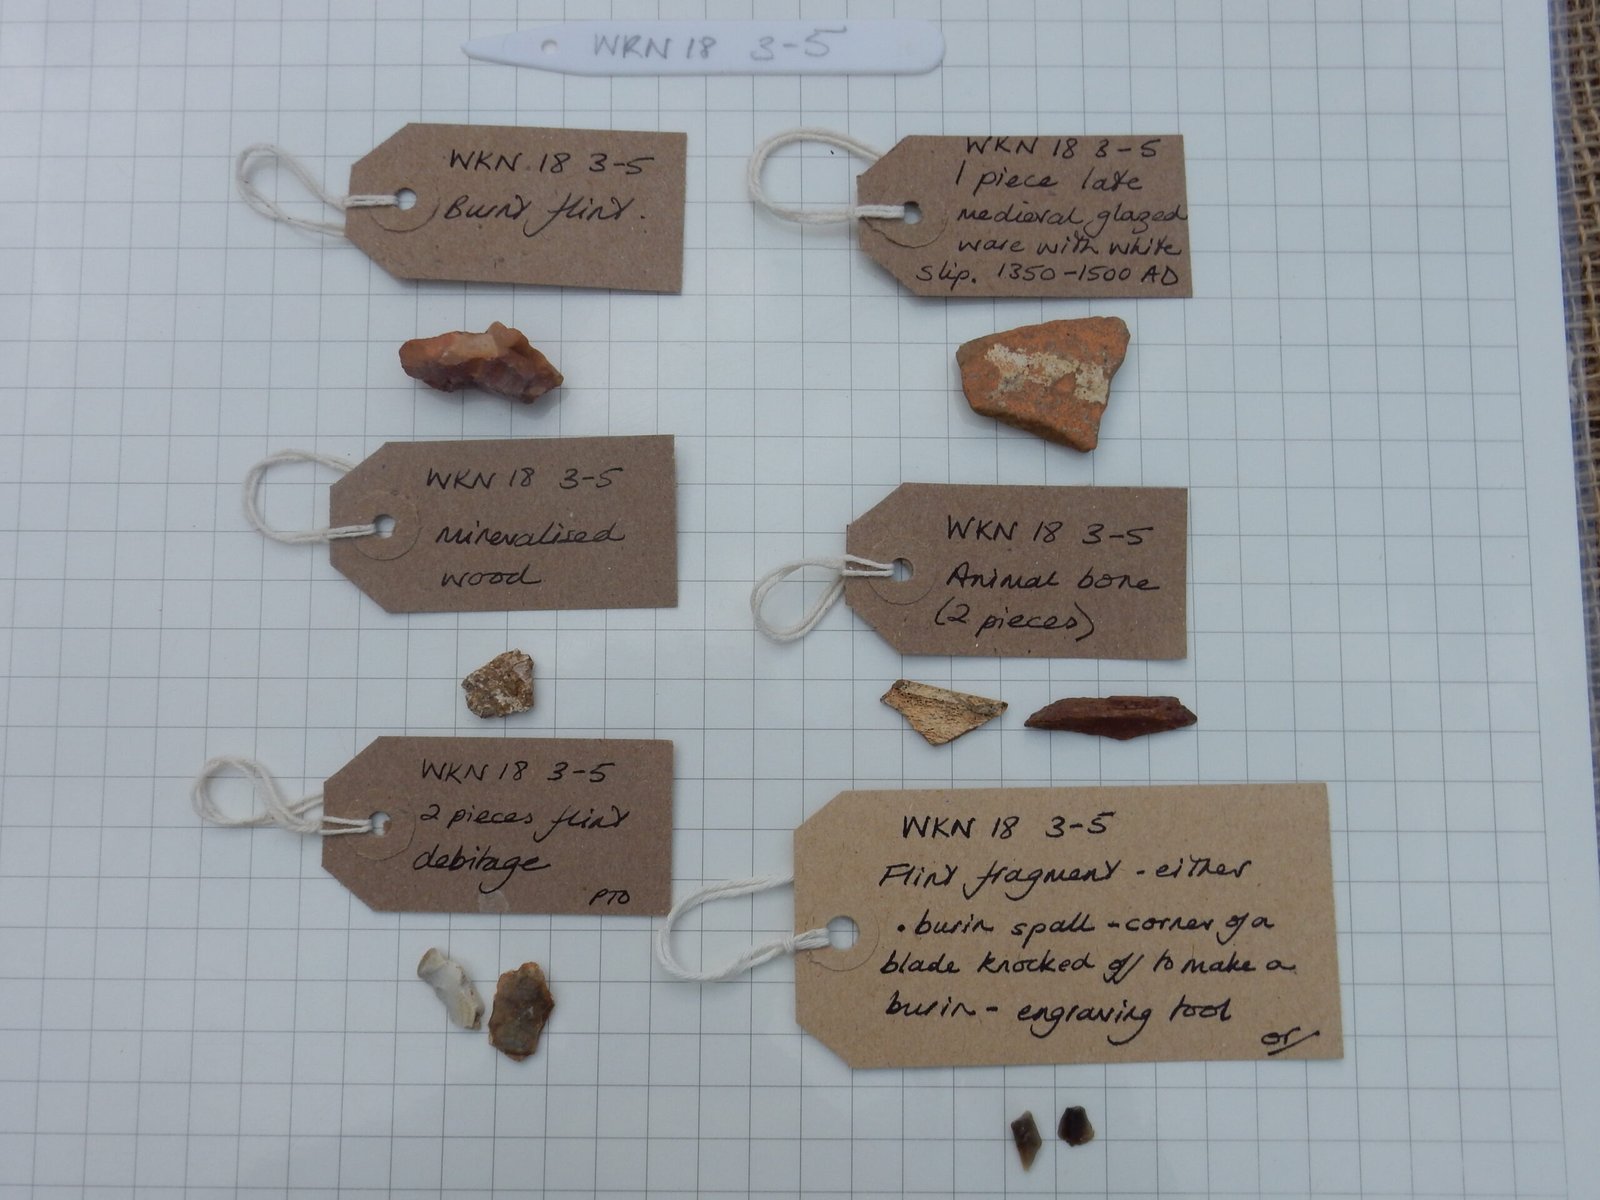 WKN 18 3-5
WKN 18 3-5
Burnt flint.
WKN 18 3-5
1 piece late
medieval glazed
ware with white
slip. 1350-1500 AD
WKN 18 3-5
mineralised
wood
WKN 18 3-5
Animal bone
(2 pieces)
WKN 18 3-5
2 pieces flint
debitage
PTO
WKN 18 3-5
Flint fragment - either
• burin spall - corner of a
blade knocked off to make a
burin - engraving tool
or